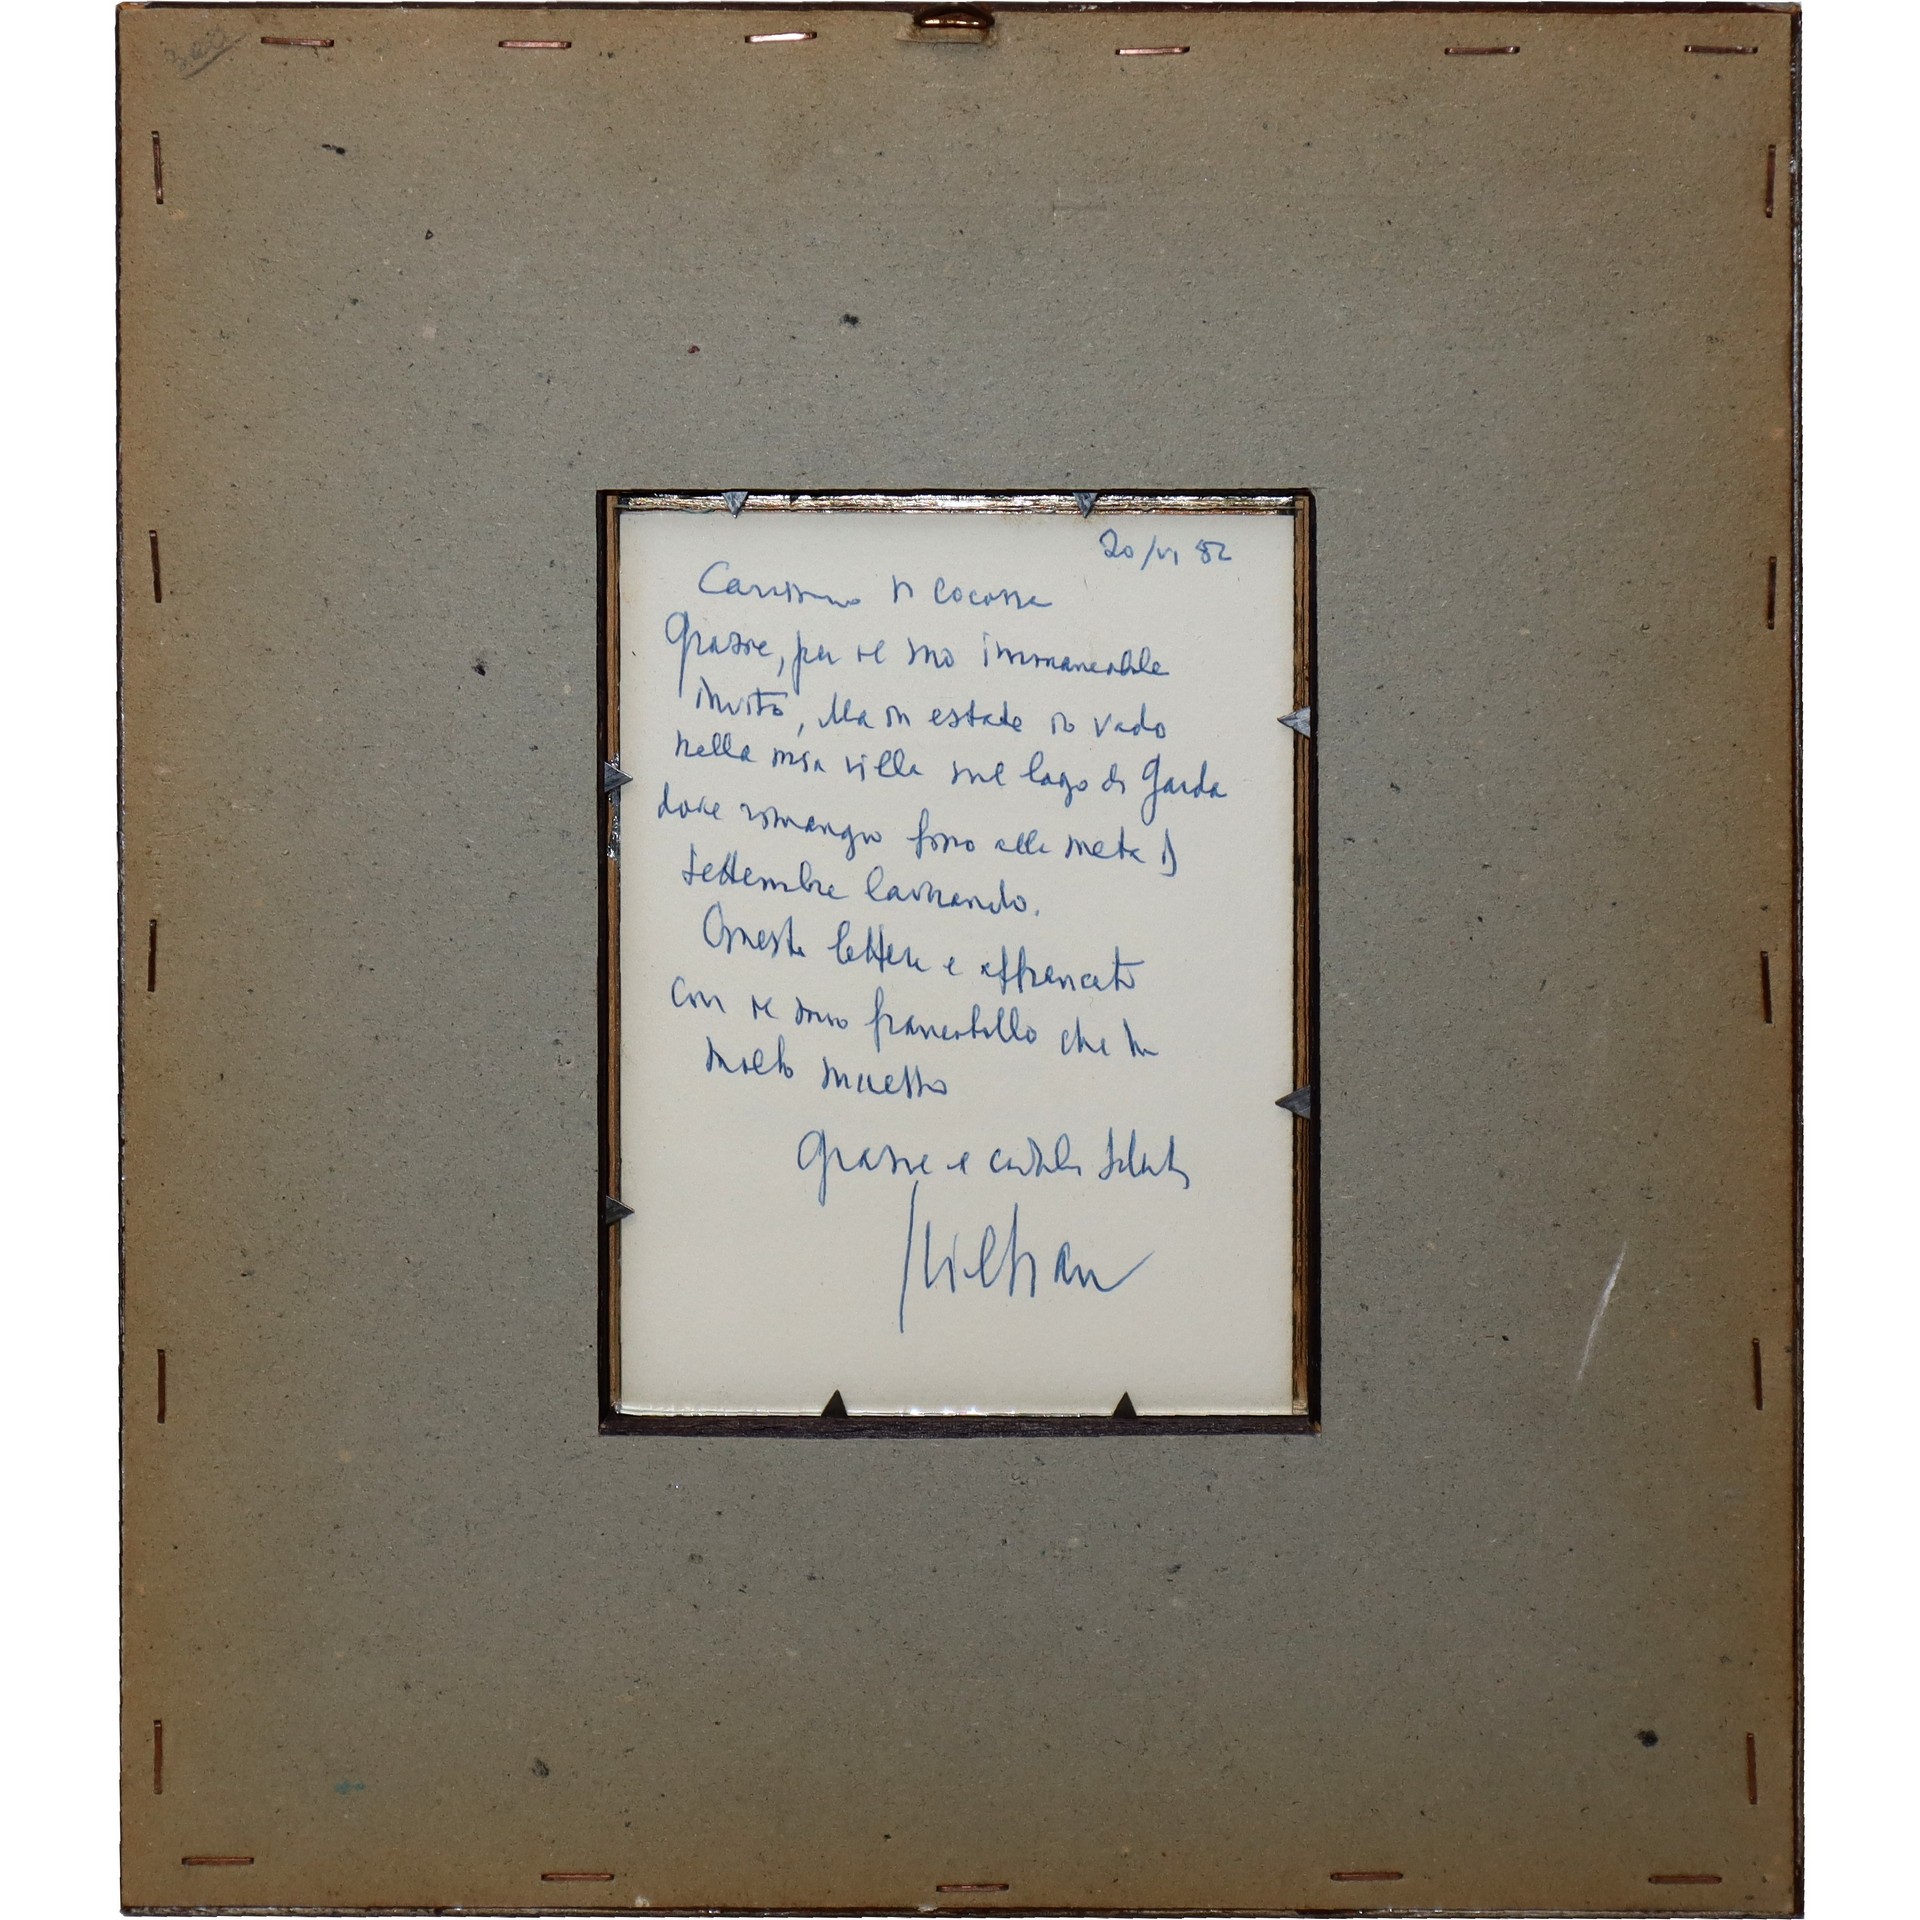 20/VI 82
Carissimo Di Cocossa
Grazie, per il suo immancabile
invito, Ma in estate io vado
nella mia villa sul lago di Garda
dove rimango fino alla metà di
settembre lavorando.
Questa lettera è affrancata
con il suo francobollo che è
molto
Grazie e cordiali saluti